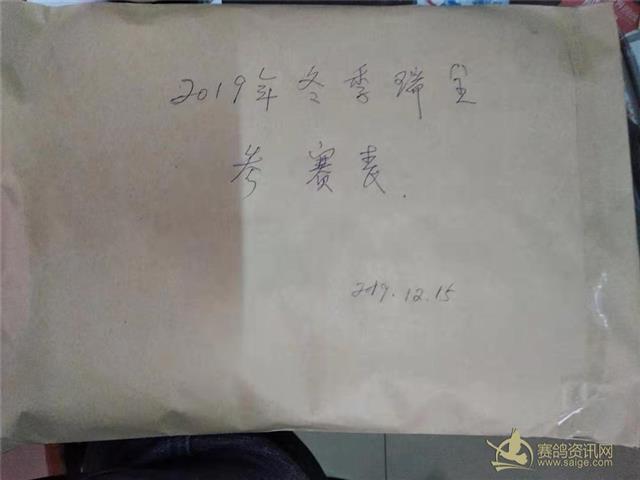 2019年冬季瑞星
参赛表.
2019.12.15
赛鸽资讯网
www.saige.com